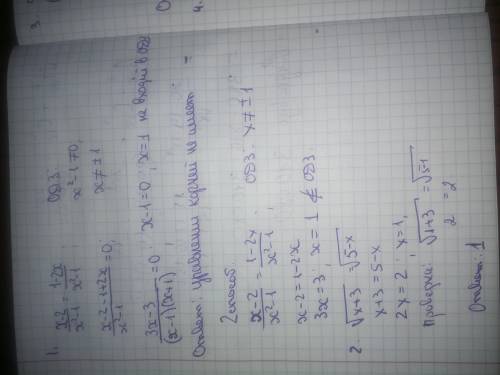 3.
4.
1. (x-2)/(x²-1) = (1-2x)/(x²-1) ОДЗ
x²-1≠0,
(x-2-1+2x)/(x²-1) = 0; x≠±1
(3x-3)/((x-1)(x+1)) = 0; x-1=0, x=1 не входит в ОДЗ
Ответ: уравнении корней не имеет
2 способ.
(x-2)/(x²-1) = (1-2x)/(x²-1); ОДЗ. x≠±1
x-2=1-2x
3x=3; x=1 ∉ ОДЗ.
2. √(x+3) = √(5-x)
x+3=5-x
2x=2; x=1,
Проверка: √(1+3) = √(5-1)
2 = 2
Ответ: 1